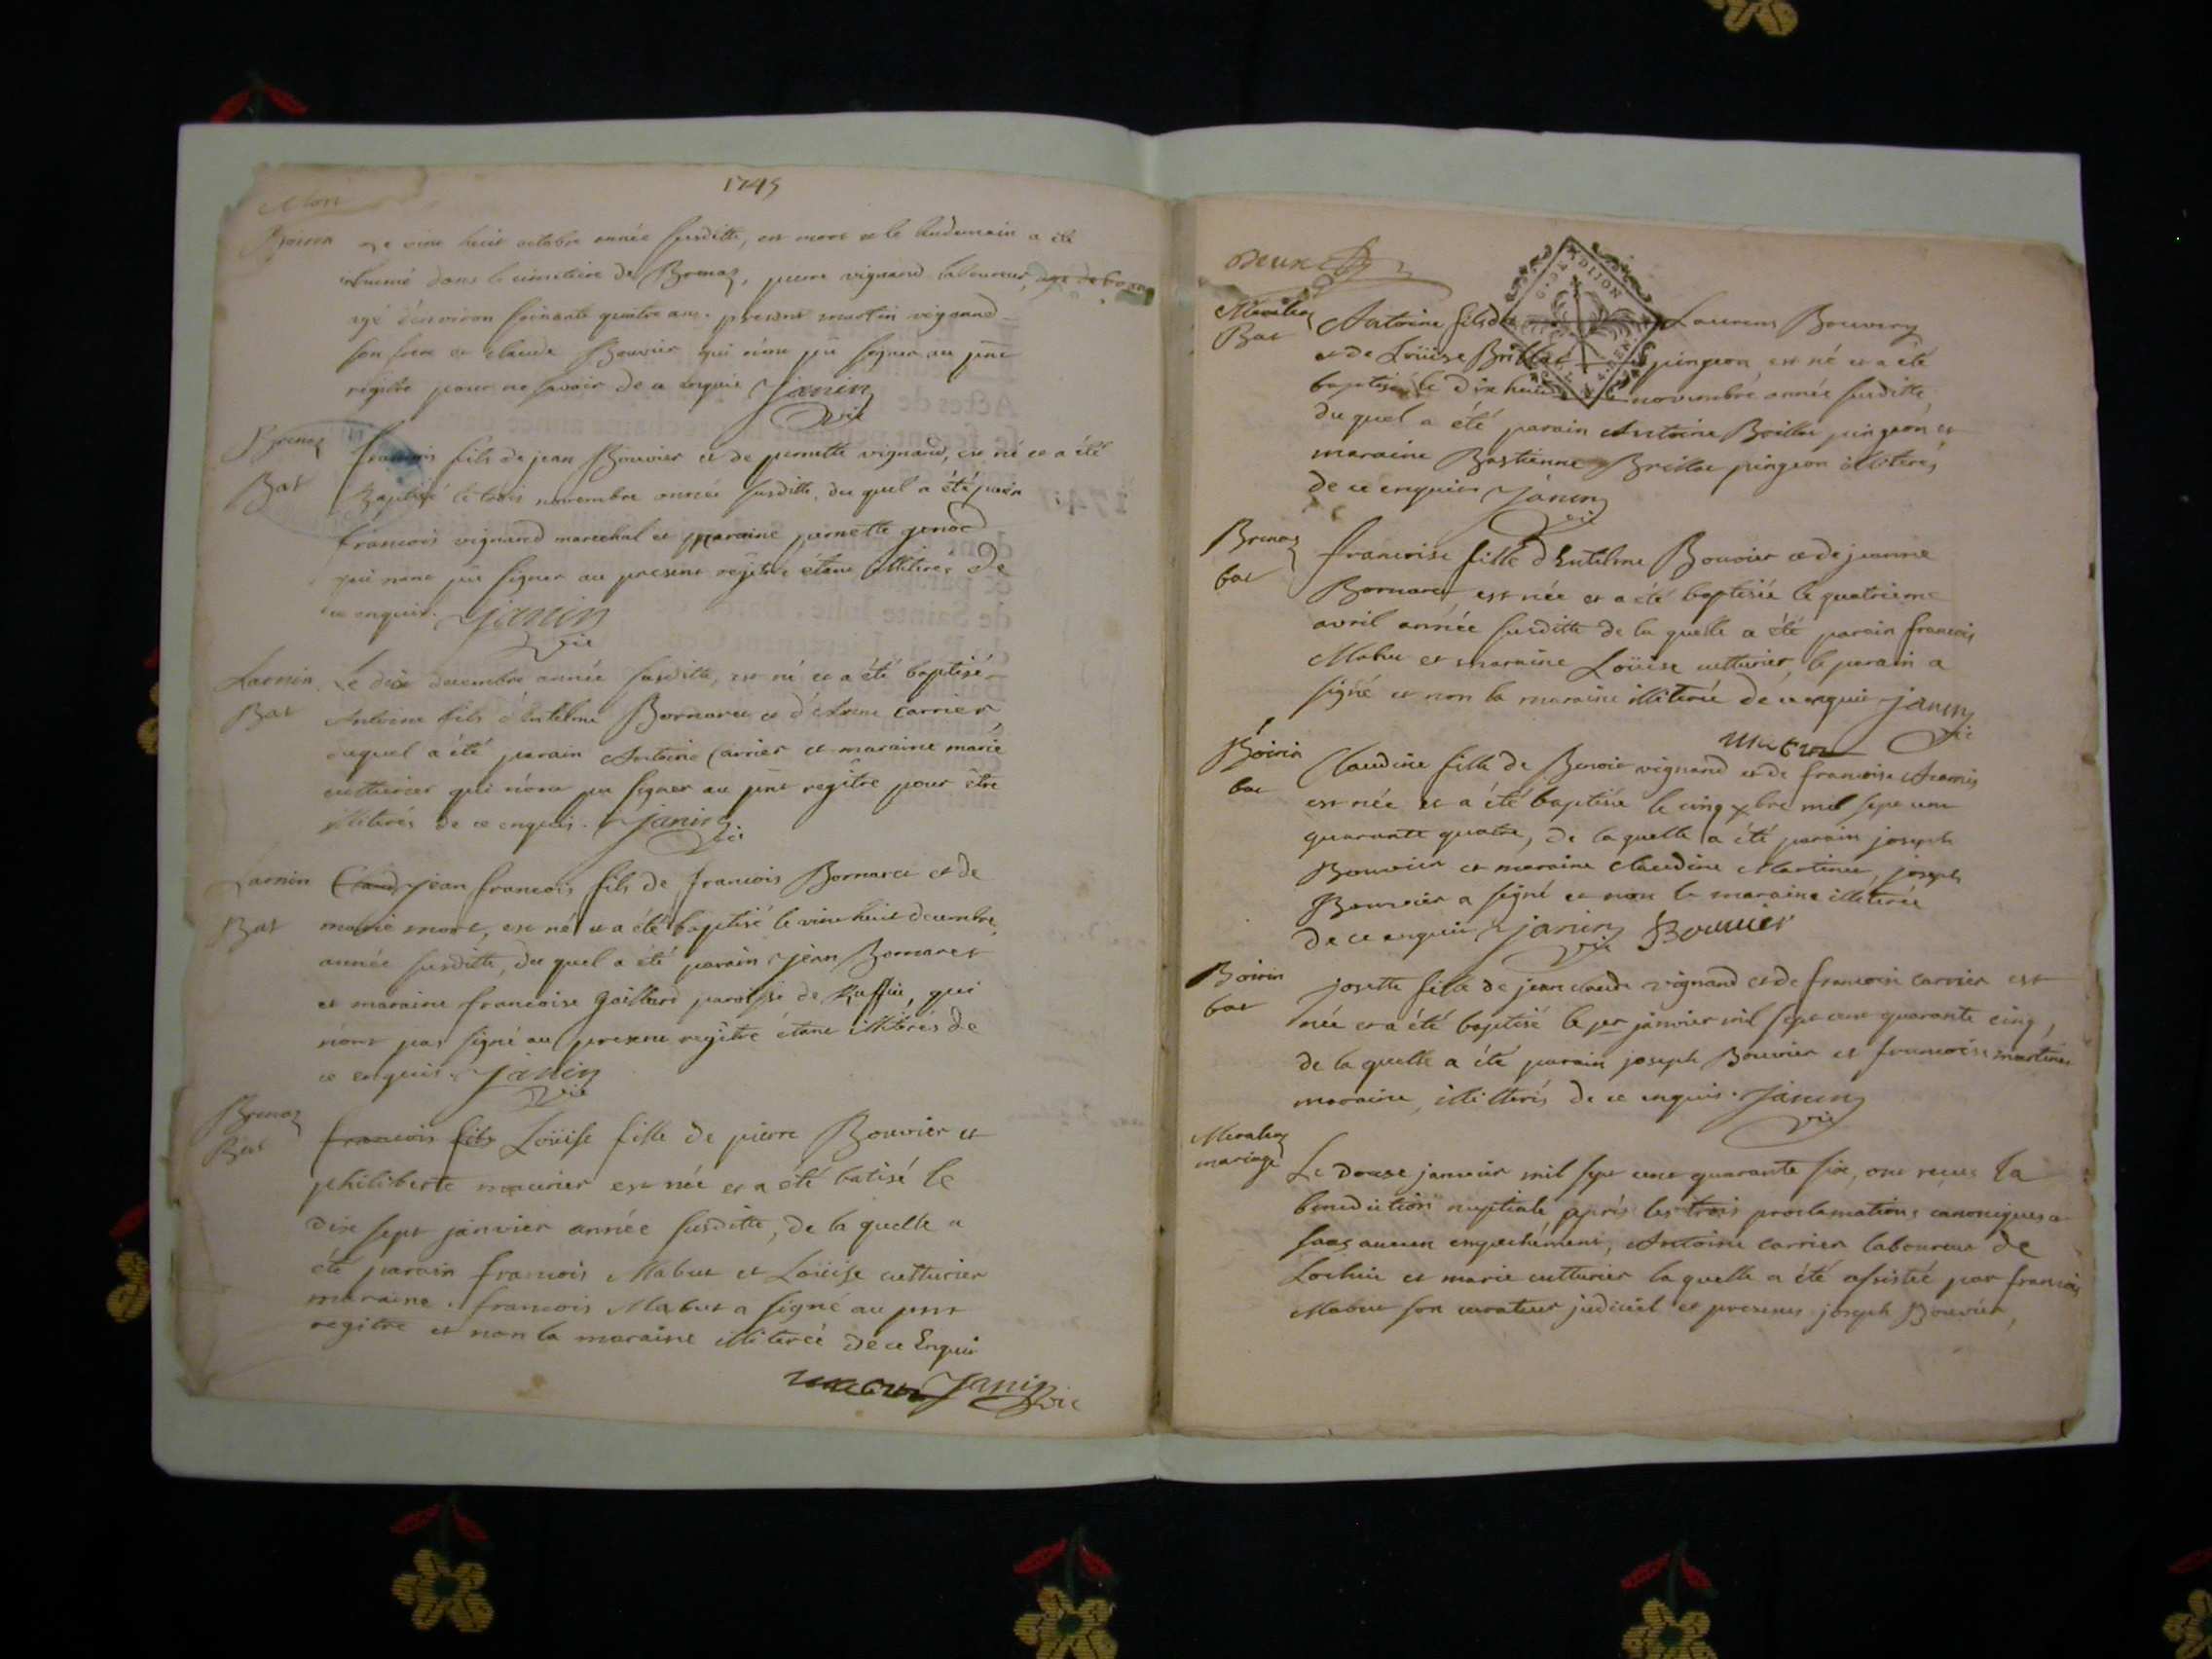 1745
Mort
Boirin le vint huit octobre année susditte, est mort et le lendemain a été
inhumé dans le cimetiere de Brenaz, pierre vignand laboureur,
agé d'environ soixante quatre ans. present martin vignand
son frere et claude Bouvier qui n'ont pû signer au pnt
regitre pour ne savoir de ce enquis Janin
vic
Brenaz
Bat
francois fils de jean Bouvier et de pernette vignand, est né et a été
Baptisé le trois novembre année susditte, du quel a été parain
francois vignand marechal et maraine pernette genod
qui nont pû signer au present regitre étant illiterés de
ce enquis. Janin
vic
Larnin
Bat
Le dix decembre année susditte, est né et a été baptisé
Antoine fils d'Entelme Bornaret et d'Anne Carrier,
duquel a été parain Antoine Carrier et maraine marie
cutturier qui n'ont pu signer au pnt regitre pour être
illiterés de ce enquis. Janin
vic
Larnin
Bat
Claud jean francois fils de francois Bornaret et de
marie mort, est né et a été baptisé le vint huit decembre
année susditte, du quel a été parain jean Bornaret
et maraine francoise Gaillard paroisse de Ruffieu, qui
n'ont pas signé au present regitre étant illiterés de
ce enquis. Janin
vic
Brenaz
Bat
francois fils Loüise fille de pierre Bouvier et
philiberte mourier est née et a été batisé le
dix sept janvier année susditte, de la quelle a
été parain francois Mabut et Loüise cutturier
maraine. francois Mabut a signé au pnt
regitre et non la maraine illiterée de ce Enquis
mabut Janin vic
Deux
G. DE DIJON
Meraleaz
Bat
Antoine fils de Laurens Bouvery
et de Loüise Brillat pingeon, est né et a été
baptisé le dix huit novembre année susditte,
du quel a été parain Antoine Brillat pingeon et
maraine Bastienne Brillat pingeon illiterés
de ce enquis Janin
vic
Brenaz
bat
francoise fille d'Entelme Bouvier et de jeanne
Bornaret, est née et a été baptisée le quatrieme
avril année susditte de la quelle a été parain francois
Mabut et maraine Loüise cutturier, le parain a
signé et non la maraine illiterée de ce enquis Janin
mabut vic
Boirin
bat
Claudine fille de Benoit vignand et de francoise
est née et a été baptisée le cinq xbre mil sept cent
quarante quatre, de la quelle a été parain joseph
Bouvier et maraine claudine Martinet, joseph
Bouvier a signé et non la maraine illiterée
de ce enquis Janin vic Bouvier
Boirin
bat
josette fille de jean claude vignand et de francoise carrier est
née et a été baptisé le 1er janvier mil sept cent quarante cinq,
de la quelle a été parain joseph Bouvier et francoise martinet
maraine, illitterés de ce enquis. Janin
vic
Meraleaz
mariage
Le douse janvier mil sept cent quarante six, ont reçus la
benediction nuptiale après les trois proclamations canoniques
sans aucun empechement, Antoine carrier laboureur de
Lochieu et marie cutturier la quelle a été assistée par francois
Mabut son curateur judiciel et presents joseph Bouvier,